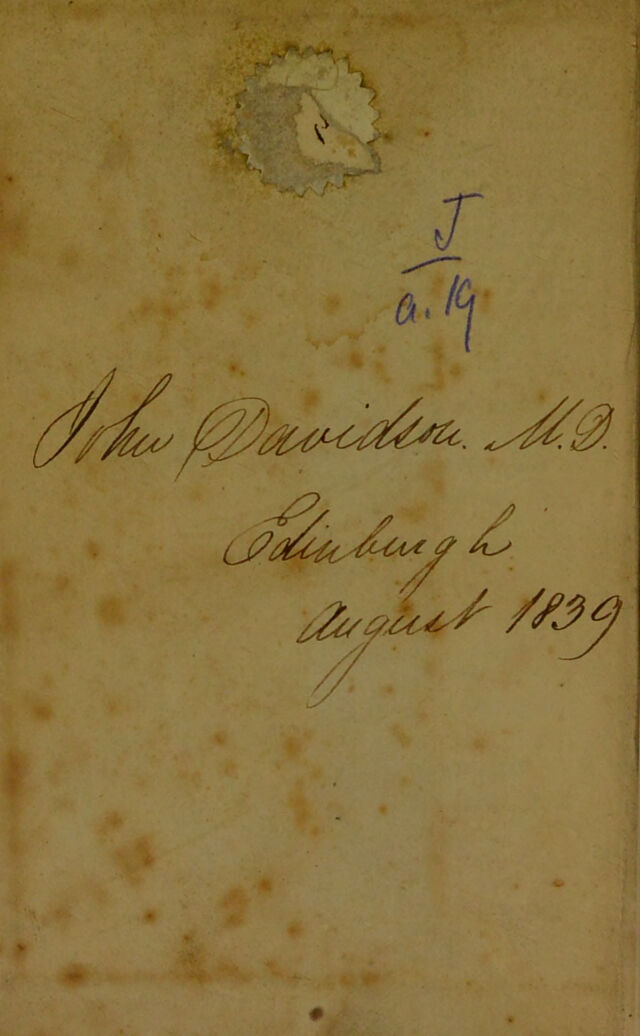 J
a.19
John Davidson. M.D.
Edinburgh
August 1839